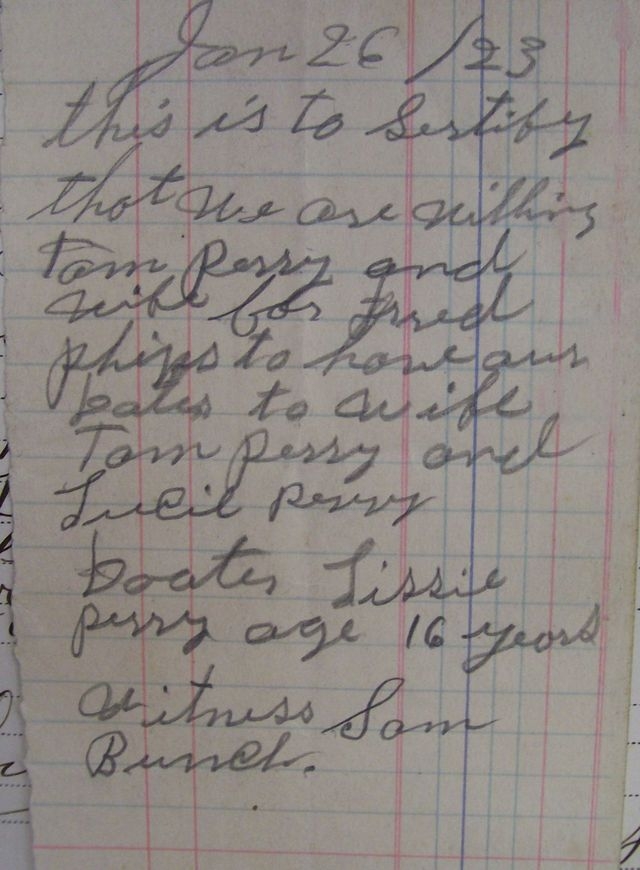 Jan 26 /23
this is to Sertify
that we are willing
Tom Perry and
wife for Fred
phips to have our
doter to wife
Tom perry and
Lucil perry
doater Lissie
perry age 16 years
Witness Sam
Bunch.